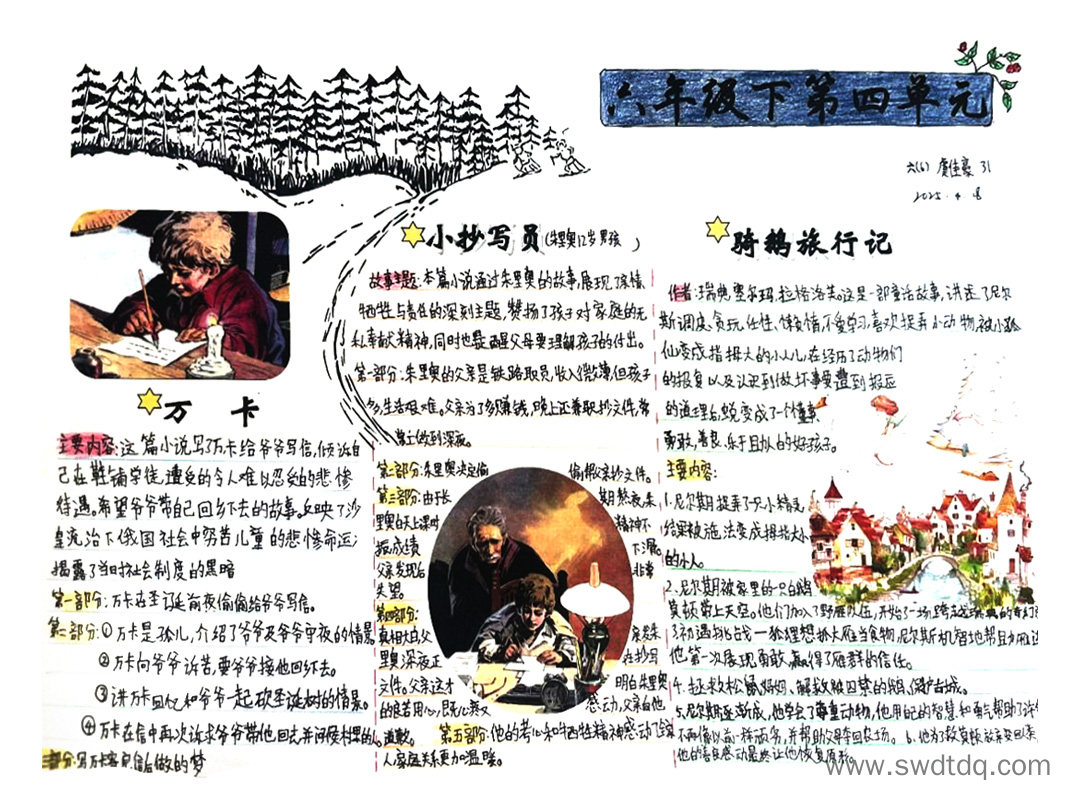 六年级下第四单元
六(6) 虞佳豪 31
2025.4.8
万 卡
主要内容:这篇小说写了万卡给爷爷写信,倾诉自
己在鞋铺学徒,遭受的令人难以忍受的悲惨
待遇。希望爷爷带自己回乡下去的故事。反映了沙
皇统治下俄国社会中穷苦儿童的悲惨命运,
揭露了当时社会制度的黑暗
第一部分:万卡在圣诞前夜偷偷给爷爷写信。
第二部分:①万卡是孤儿,介绍了爷爷及爷爷守夜的情景
②万卡向爷爷诉苦,要爷爷接他回乡下去。
③讲万卡回忆和爷爷一起砍圣诞树的情景。
④万卡在信中再次请求爷爷带他回去并问候村里的人
三部分:写万卡寄完信后做的梦
小抄写员(朱里奥12岁男孩 )
故事主题:本篇小说通过朱里奥的故事,展现了亲情、
牺牲与责任的深刻主题,赞扬了孩子对家庭的无
私奉献精神,同时也提醒父母要理解孩子的付出。
第一部分:朱里奥的父亲是铁路职员,收入微薄,但孩子
多,生活艰难。父亲为了多赚钱,晚上还兼职抄文件,常
常工作到深夜。
第二部分:朱里奥决定偷 偷帮父亲抄文件。
第三部分:由于长 期熬夜,朱
里奥的上课时 精神不
振,成绩 下滑。
父亲发现后 非常
失望。
第四部分:
真相大白,父 亲发朱
里奥深夜正 在抄写
文件。父亲这才 明白朱里奥
的良苦用心,既心疼又 感动,父亲向他
道歉。 第五部分:他的孝心和牺牲精神感动了全家
人,家庭关系更加温暖。
骑鹅旅行记
作者:瑞典塞尔玛.拉格洛芙。这是一部童话故事,讲述了尼尔
斯调皮、贪玩、任性、懒惰、不爱学习,喜欢捉弄小动物,被小狐
仙变成拇指大的小人儿,在经历了动物们
的报复以及认识到做坏事要遭到报应
的道理后,蜕变成了一个懂事、
勇敢、善良、乐于助人的好孩子。
主要内容:
1.尼尔斯捉弄了一只小精灵,
结果被施法变成拇指大小
的小人。
2.尼尔斯被家里的一只白鹅
带上天空。他们加入了野雁队伍,开始了一场跨越瑞典的奇幻
3.初遇挑战一狐狸想抓大雁当食物,尼尔斯机智地帮
他第一次展现勇敢,赢得了雁群的信任。
4.拯救松鼠妈妈、解救被囚禁的熊、
5.尼尔斯逐渐成,他学会了尊重动物,他用自己的智慧和勇气帮助了许
不再像以前一样顽劣,并帮助父母 回农场。 6.他为了救 放弃变回
他的善良感动最终让他恢复原形。
www.swdtdq.com